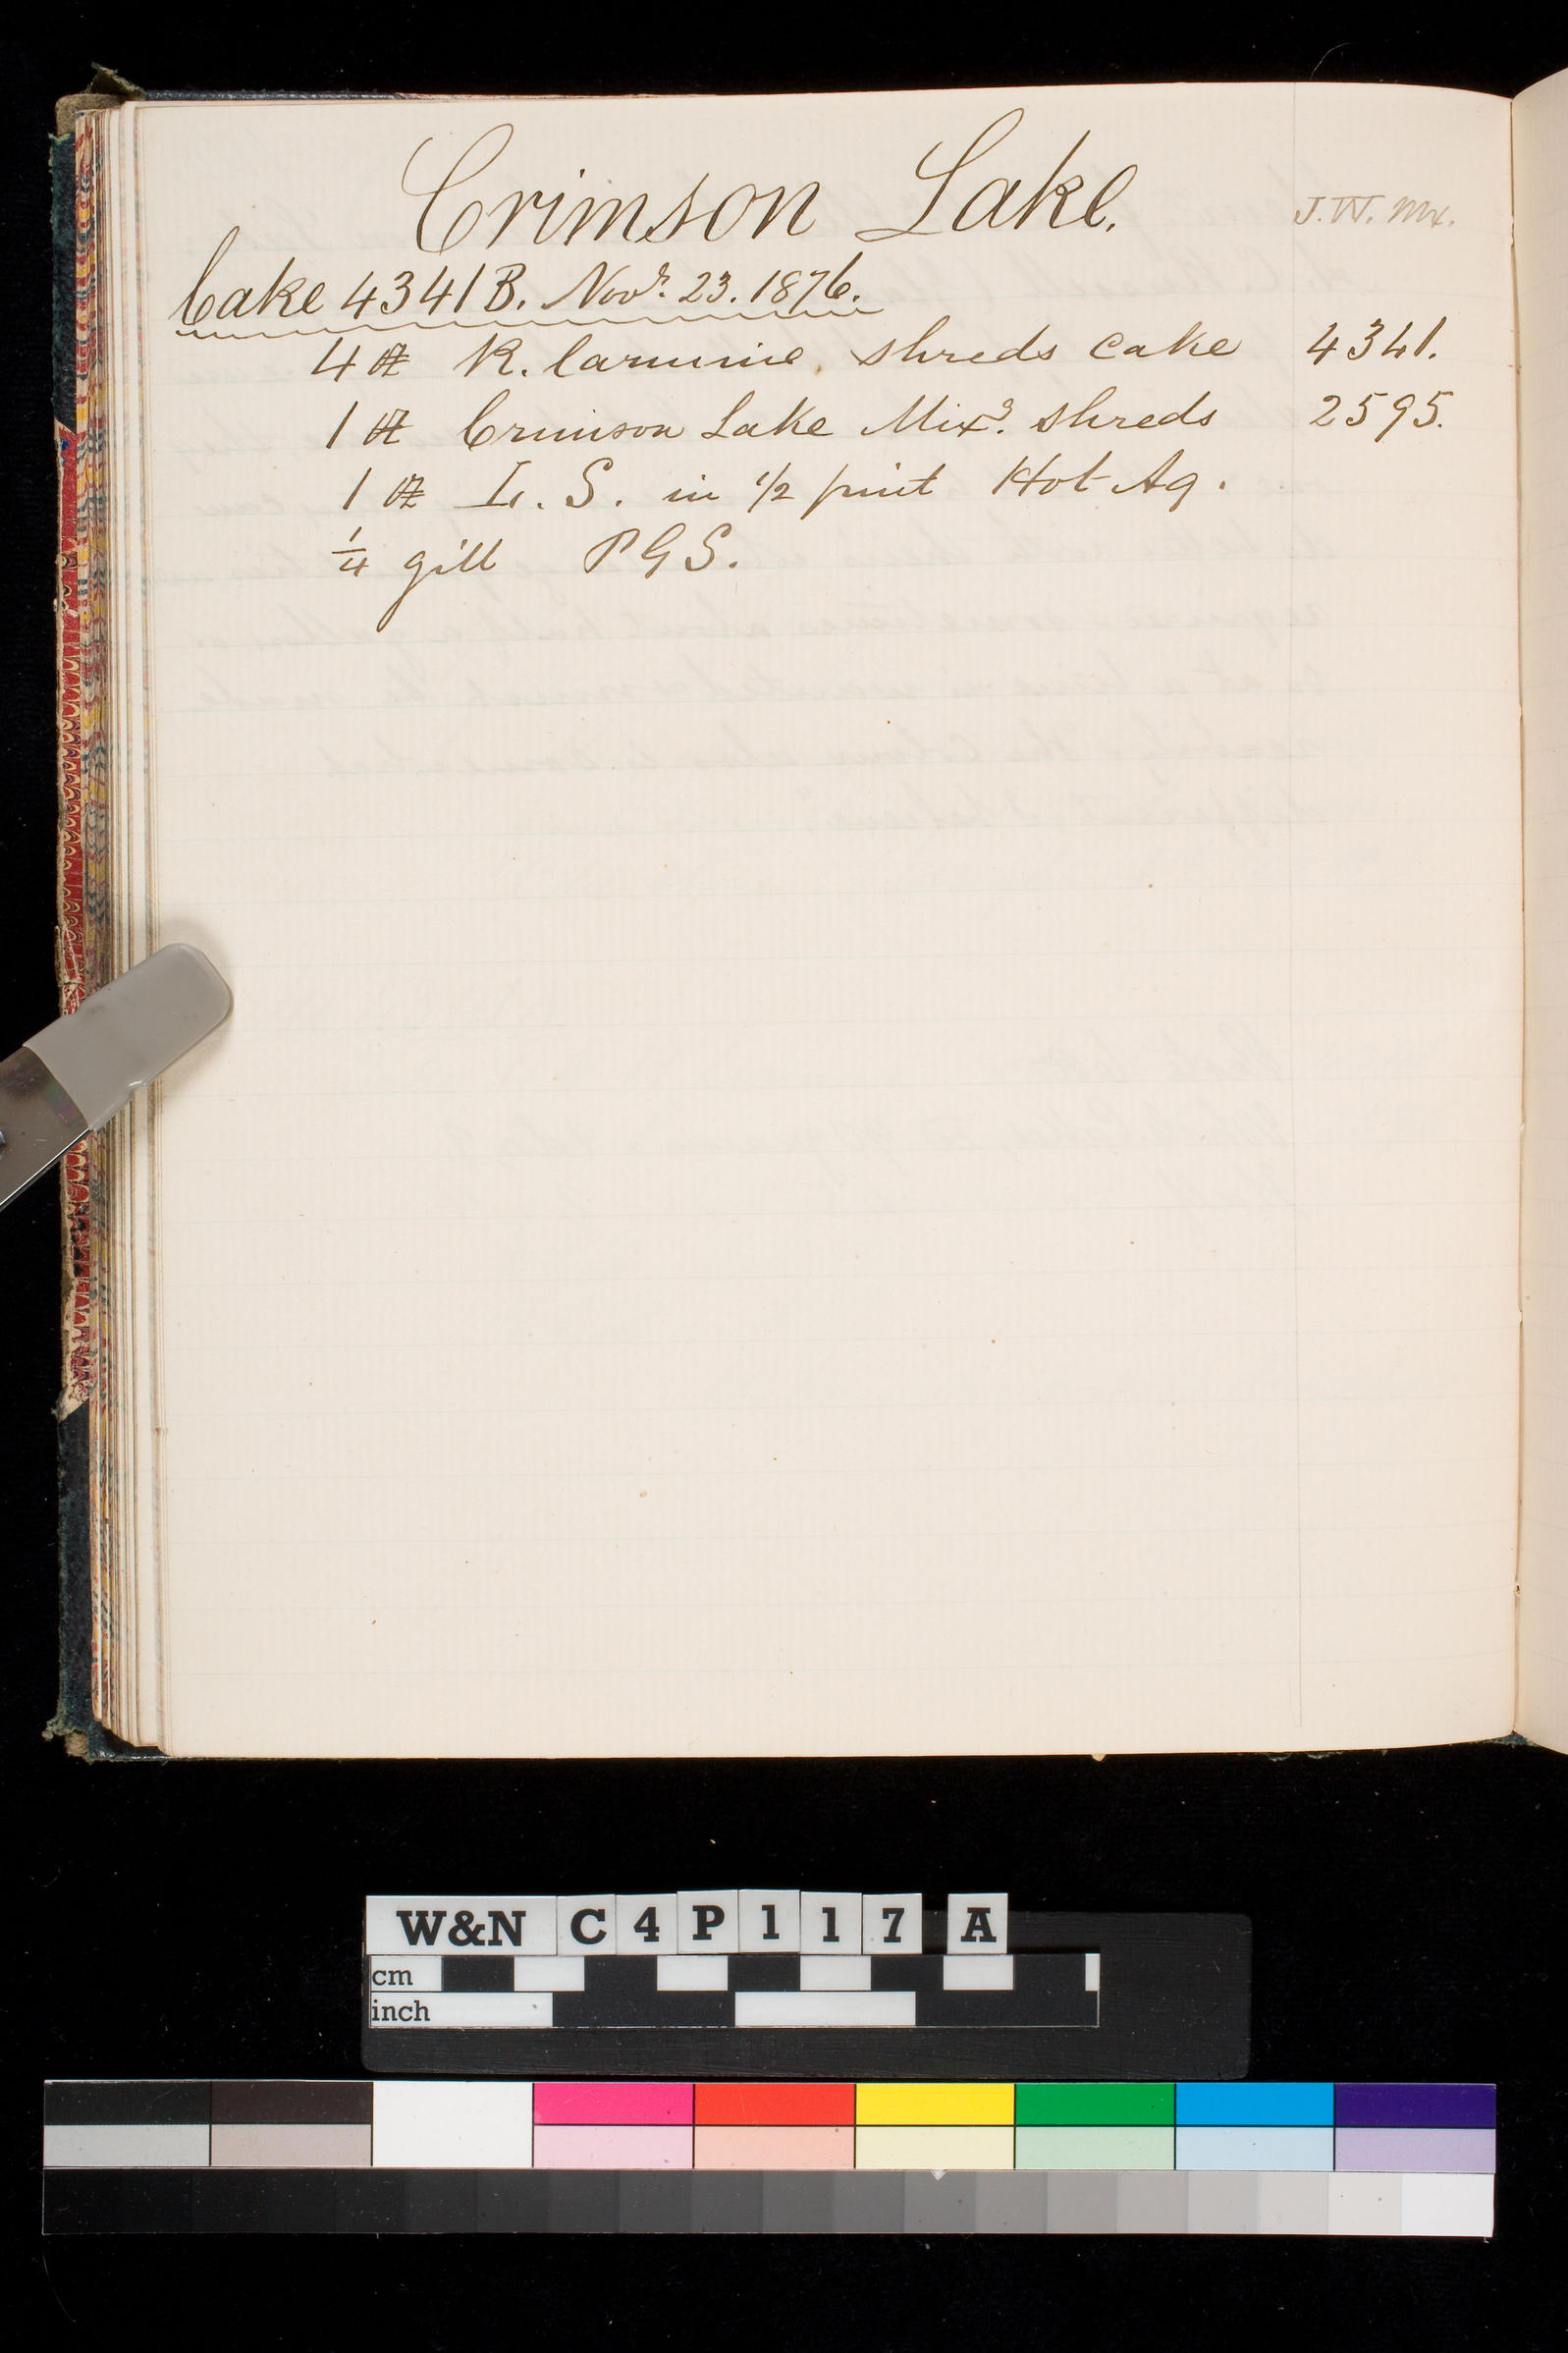 Crimson Lake. J.W. Mx.
Cake 4341 B. Novr. 23. 1876.
4 ℔ R. Carmine, shreds cake 4341.
1 ℔ Crimson Lake Mixg. shreds 2595.
1 ℔ S. in 1/2 pint Hot Aq.
1/4 gill P G S.
W&N C4P117 A
cm
inch